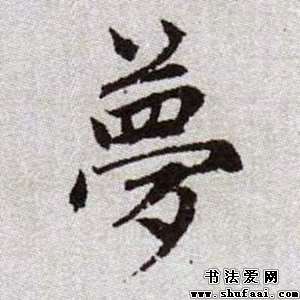 夢
书法爱网
www.shufaai.com